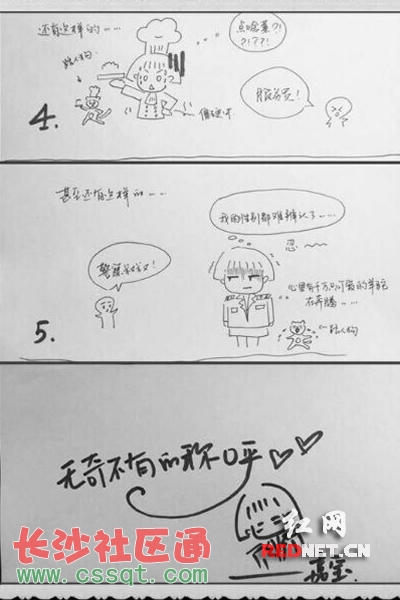 还有这样的……
点啥菜?!
?!???!
路人狗
服务员!
4.
甚至还有这样的……
我的性别都难辨认了……
忍~~
警察叔叔!
心里有千万只可爱的羊驼
在奔腾……
路人狗
5.
无奇不有的称呼
嘉宝
红网
REDNET.CN
长沙社区通
www.cssqt.com